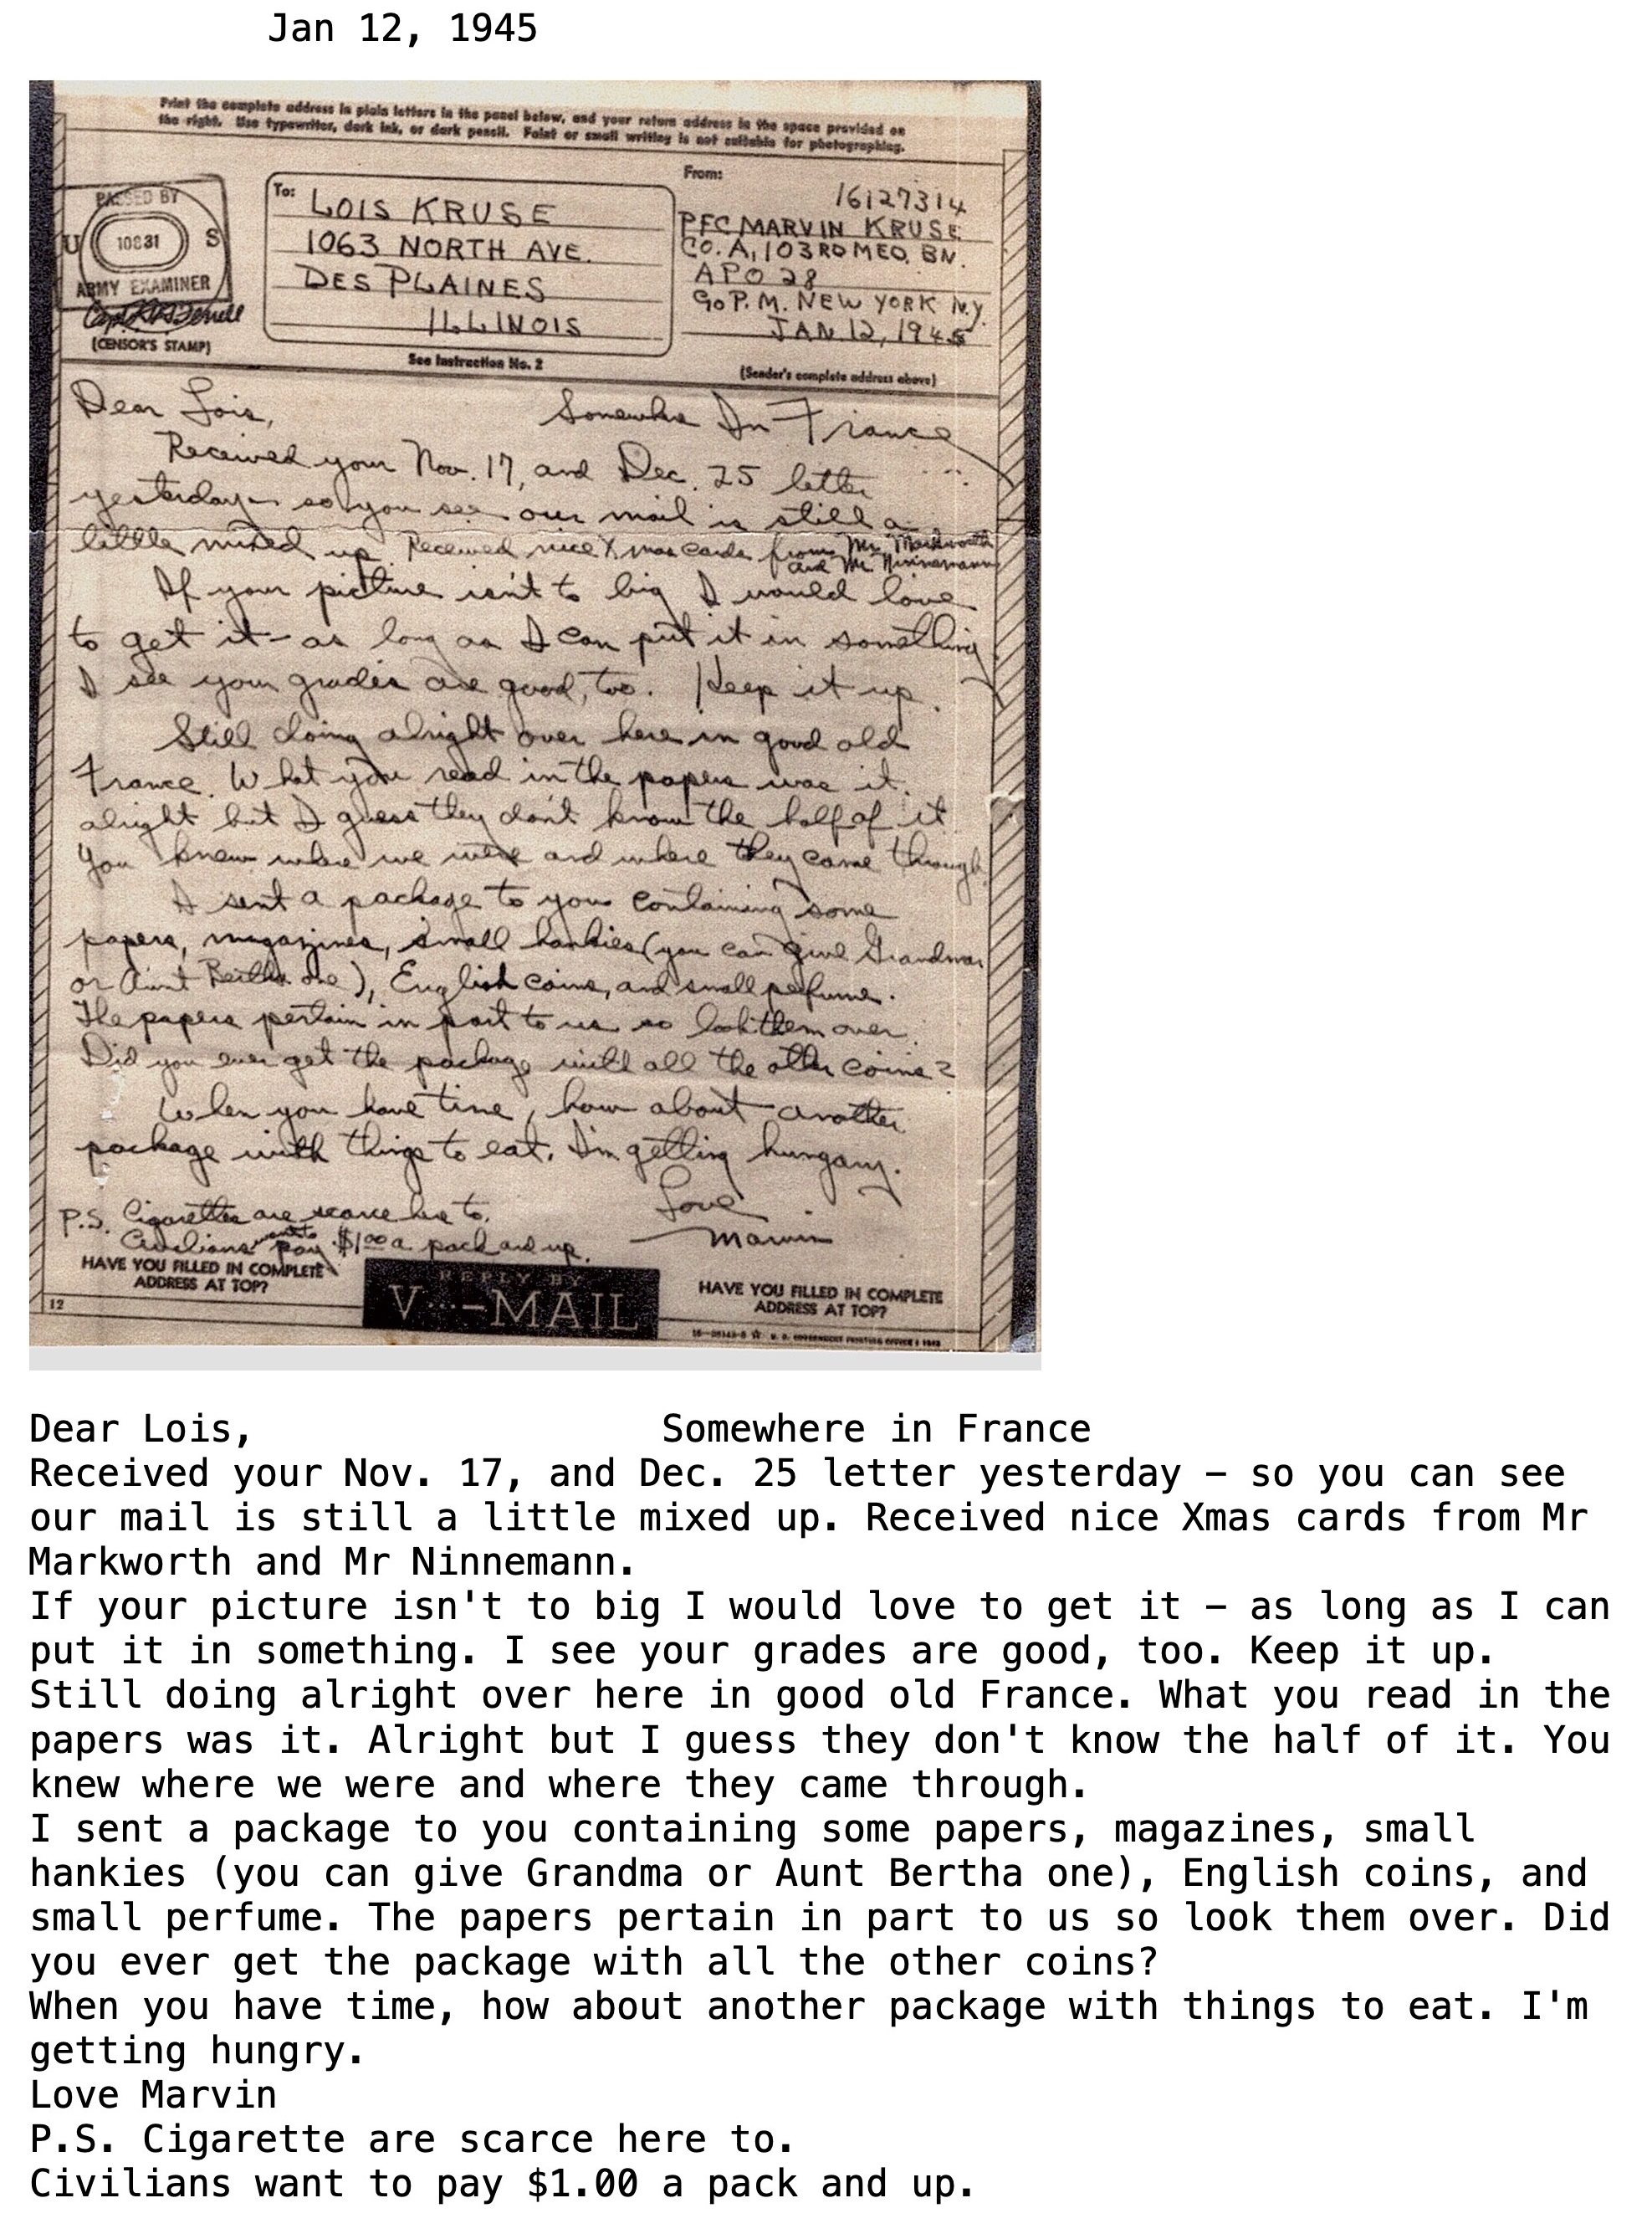 Jan 12, 1945
Print the complete address in plain letters in the panel below, and your return address in the space provided on
the right. Use typewriter, dark ink, or dark pencil. Faint or small writing is not suitable for photographing.
PASSED BY
U 10831 S
ARMY EXAMINER
(CENSOR'S STAMP)
To:
LOIS KRUSE
1063 NORTH AVE.
DES PLAINES
ILLINOIS
See Instruction No. 2
From:
16127314
PFC MARVIN KRUSE
CO. A, 103RD MED. BN.
APO 28
C/o P.M. NEW YORK N.Y.
JAN. 12, 1945
(Sender's complete address above)
Dear Lois, Somewhe In France
Received your Nov. 17, and Dec. 25 letter
yesterday – so you see our mail is still a
little mixed up. Received nice Xmas cards from Mr. Markworth
and Mr Ninnemann
If your picture isn't to big I would love
to get it – as long as I can put it in something.
I see your grades are good, too. Keep it up.
Still doing alright over here in good old
France. What you read in the papers was it.
alright but I guess they don't know the half of it
You knew where we were and where they came through.
I sent a package to you containing some
papers, magazines, small hankies (you can give Grandma
or Aunt Bertha one), English coins, and small perfume.
The papers pertain in part to us so look them over.
Did you ever get the package with all the other coins?
When you have time, how about another
package with things to eat. I'm getting hungary.
Love
Marvin
P.S. Cigarettes are scarce here to.
Civilians want to pay $1.00 a pack and up.
HAVE YOU FILLED IN COMPLETE
ADDRESS AT TOP?
REPLY BY
V···–MAIL
HAVE YOU FILLED IN COMPLETE
ADDRESS AT TOP?
12
U. S. GOVERNMENT PRINTING OFFICE
Dear Lois, Somewhere in France
Received your Nov. 17, and Dec. 25 letter yesterday – so you can see
our mail is still a little mixed up. Received nice Xmas cards from Mr
Markworth and Mr Ninnemann.
If your picture isn't to big I would love to get it – as long as I can
put it in something. I see your grades are good, too. Keep it up.
Still doing alright over here in good old France. What you read in the
papers was it. Alright but I guess they don't know the half of it. You
knew where we were and where they came through.
I sent a package to you containing some papers, magazines, small
hankies (you can give Grandma or Aunt Bertha one), English coins, and
small perfume. The papers pertain in part to us so look them over. Did
you ever get the package with all the other coins?
When you have time, how about another package with things to eat. I'm
getting hungry.
Love Marvin
P.S. Cigarette are scarce here to.
Civilians want to pay $1.00 a pack and up.